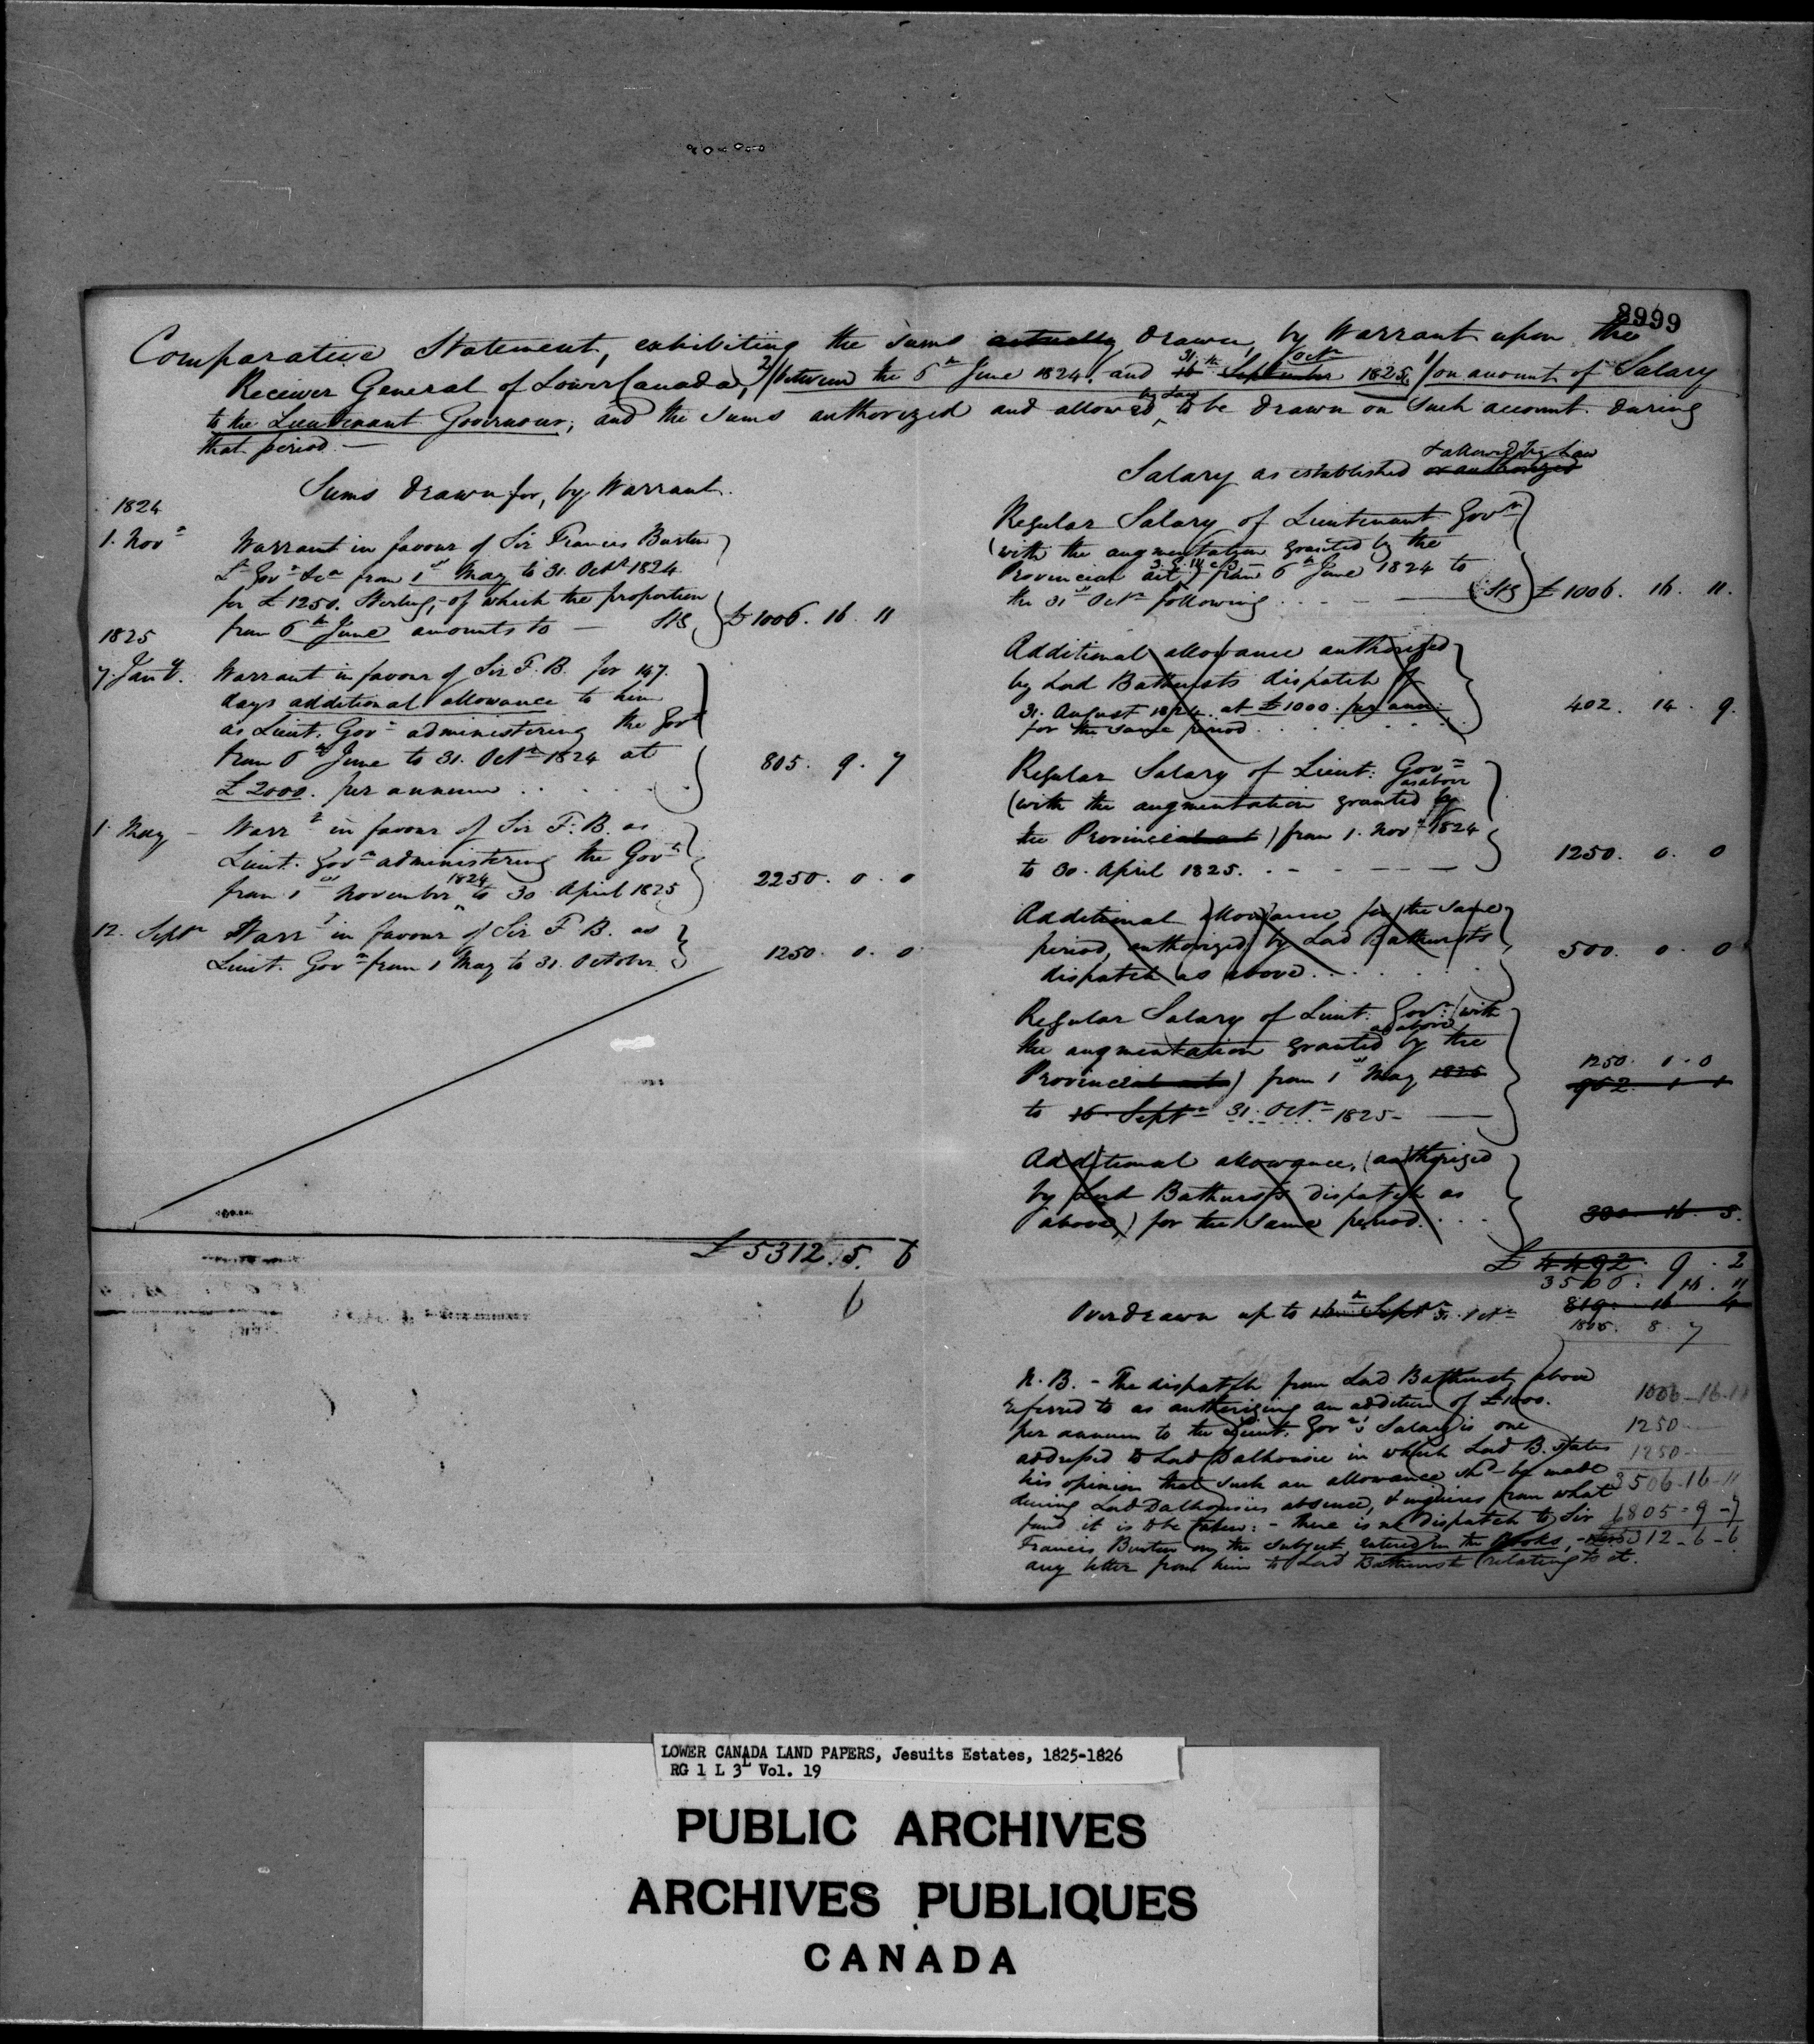 8999
Comparative Statement, exhibiting the sums actually drawn, by Warrant upon the
Receiver General of Lower Canada, 2/ between the 6th June 1824, and 16th September 31 Octr 1825, 1/ on account of Salary
to the Lieutenant Governour, and the sums authorized and allowed by Law to be drawn on such account during
that period.—
Sums drawn for, by Warrant.
1824
1. Novr Warrant in favour of Sir Francis Burton
Lt Govr &ca from 1st May to 31. Octr 1824
for £1250. Sterling,-of which the proportion
from 6th June amounts to — Stg £1006. 16 11
1825
7. Jany. Warrant in favour of Sir F. B. for 147.
days additional allowance to him
as Lieut. Govr administering the Govt
from 6th June to 31. Octr 1824 at
£2000. per annum . . . . . 805. 9. 7
1. May – Warrt in favour of Sir F. B. as
Lieut. Govr administering the Govt
from 1st November 1824 to 30 April 1825 2250. 0. 0
12. Septr Warrt in favour of Sir F. B. as
Lieut. Govr from 1 May to 31. October 1250. 0. 0
£5312. 5. 6
6
Salary as established or authorized & allowed by Law
Regular Salary of Lieutenant Govr
(with the augmentation granted by the
Provincial act) from 6th June 1824 to
the 31st Octr following . . — — Stg £1006. 16. 11.
Additional allowance authorized
by Lord Bathursts dispatch of
31. August 1824 at £1000. per ann:
for the same period . . . . . 402. 14. 9.
Regular Salary of Lieut: Govr
(with the augmentation granted by as above
the Provincial act) from 1. Novr 1824
to 30. April 1825. . - - — — 1250. 0. 0
Additional allowance for the same
period, authorized by Lord Bathursts
dispatch as above . . . . . 500. 0. 0
Regular Salary of Lieut: Govr: (with
the augmentation granted by the as above
Provincial acts) from 1st May 1825
to 16 Septr 31. Octr 1825 — 1250. 0. 0
952. 1 1
Additional allowance, (authorized
by Lord Bathursts dispatch as
above,) for the same period. . . . 380. 16. 5.
£4492. 9. 2
3506. 16. 11
Overdrawn up to 16th Septr 31. Octr 819. 16 4
1805. 8. 7
N. B. – The dispatch from Lord Bathurst above
referred to as authorizing an addition of £1000.
per annum to the Lieut. Govr's Salary is one
addressed to Lord Dalhousie in which Lord B. states
his opinion that such an allowance shd be made
during Lord Dalhousies absence, & inquires from what
fund it is to be taken: – There is no dispatch to Sir
Francis Burton on the subject entered in the Books, –
any letter from him to Lord Bathurst relating to it.
1006–16–11
1250
1250
3506–16–11
1805–9–7
5312–6–6
LOWER CANADA LAND PAPERS, Jesuits Estates, 1825-1826
RG 1 L 3L Vol. 19
PUBLIC ARCHIVES
ARCHIVES PUBLIQUES
CANADA